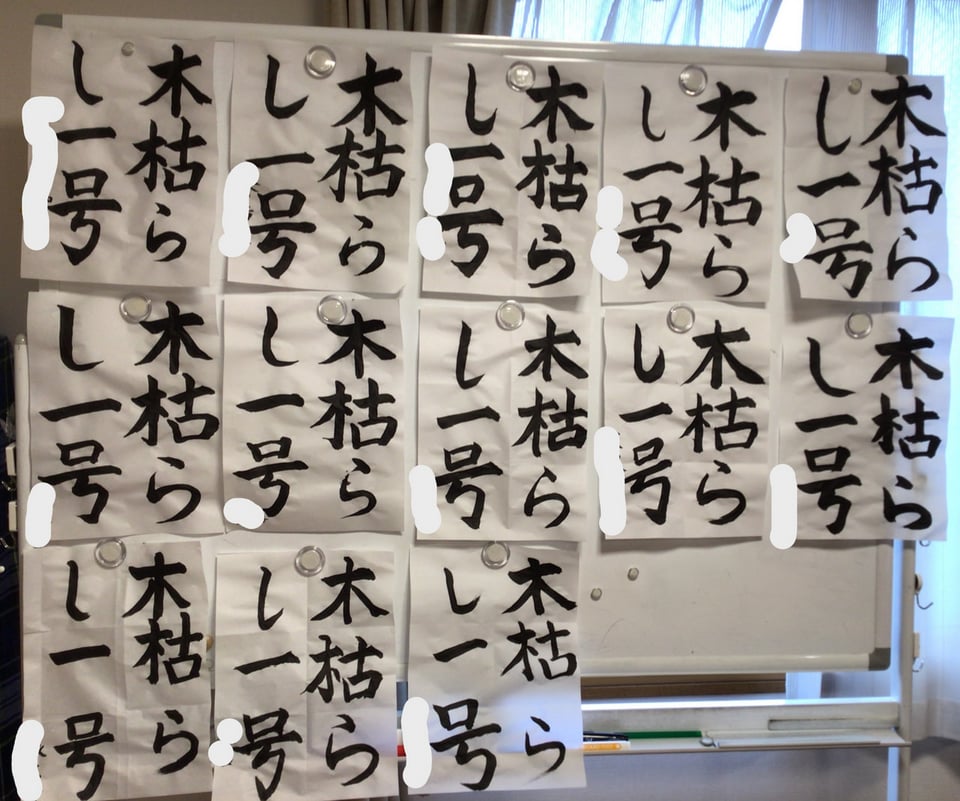 木枯ら
し一号
木枯ら
し一号
木枯ら
し一号
木枯ら
し一号
木枯ら
し一号
木枯ら
し一号
木枯ら
し一号
木枯ら
し一号
木枯ら
し一号
木枯ら
し一号
木枯ら
し一号
木枯ら
し一号
木枯ら
し一号